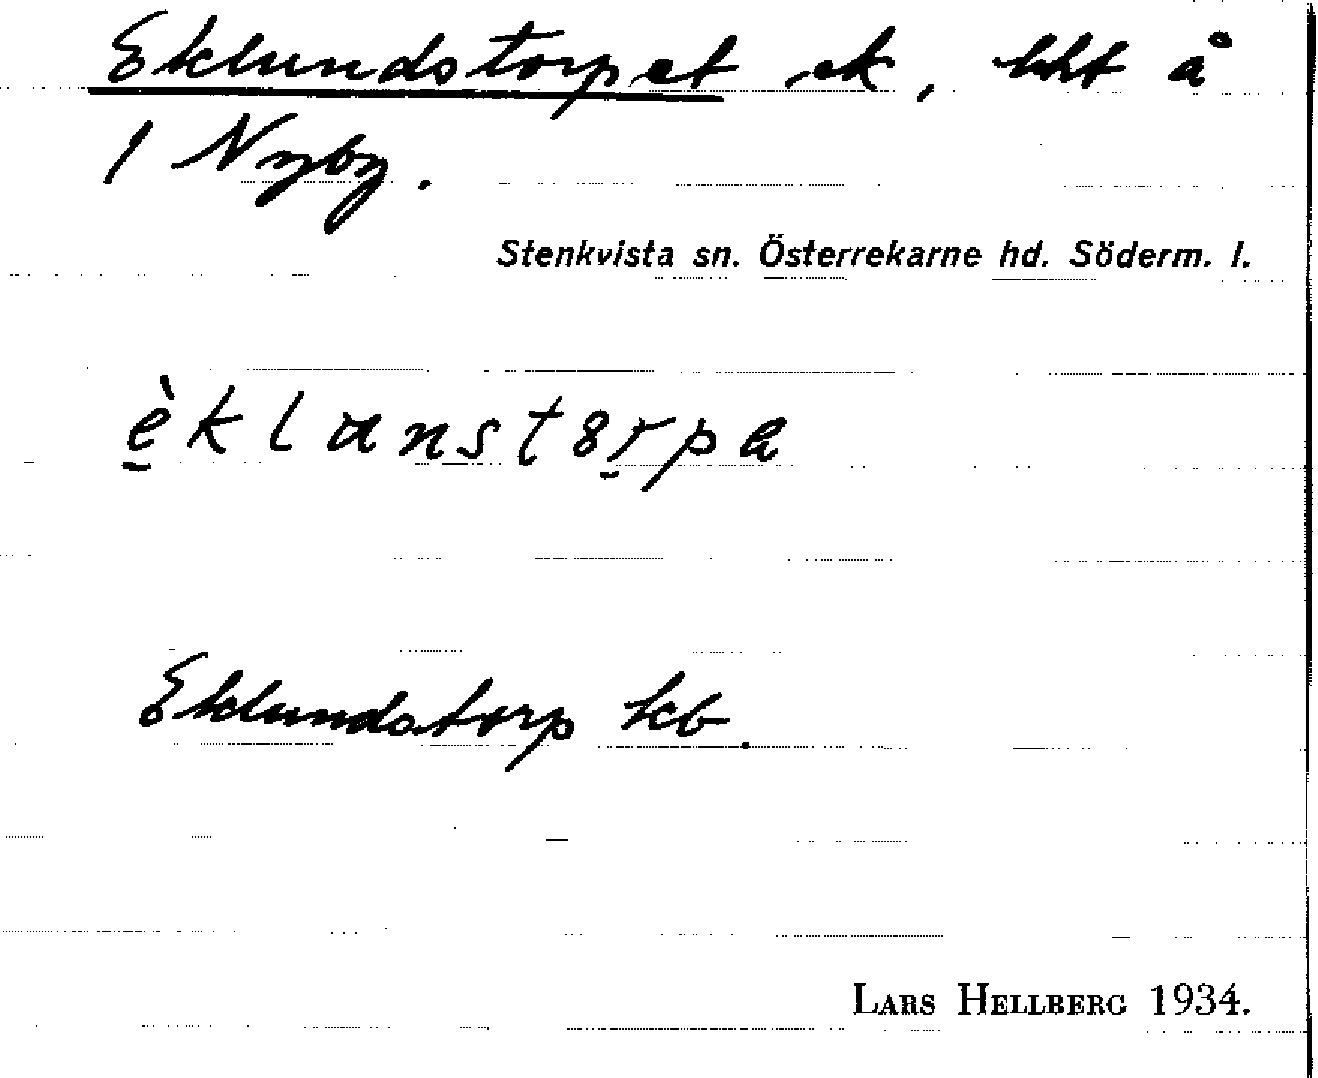 Eklundstorpet ek, lht å
1 Nyby.
Stenkvista sn. Österrekarne hd. Söderm. l.
è̠klunstor̠pa
Eklundstorp kb.
LARS HELLBERG 1934.